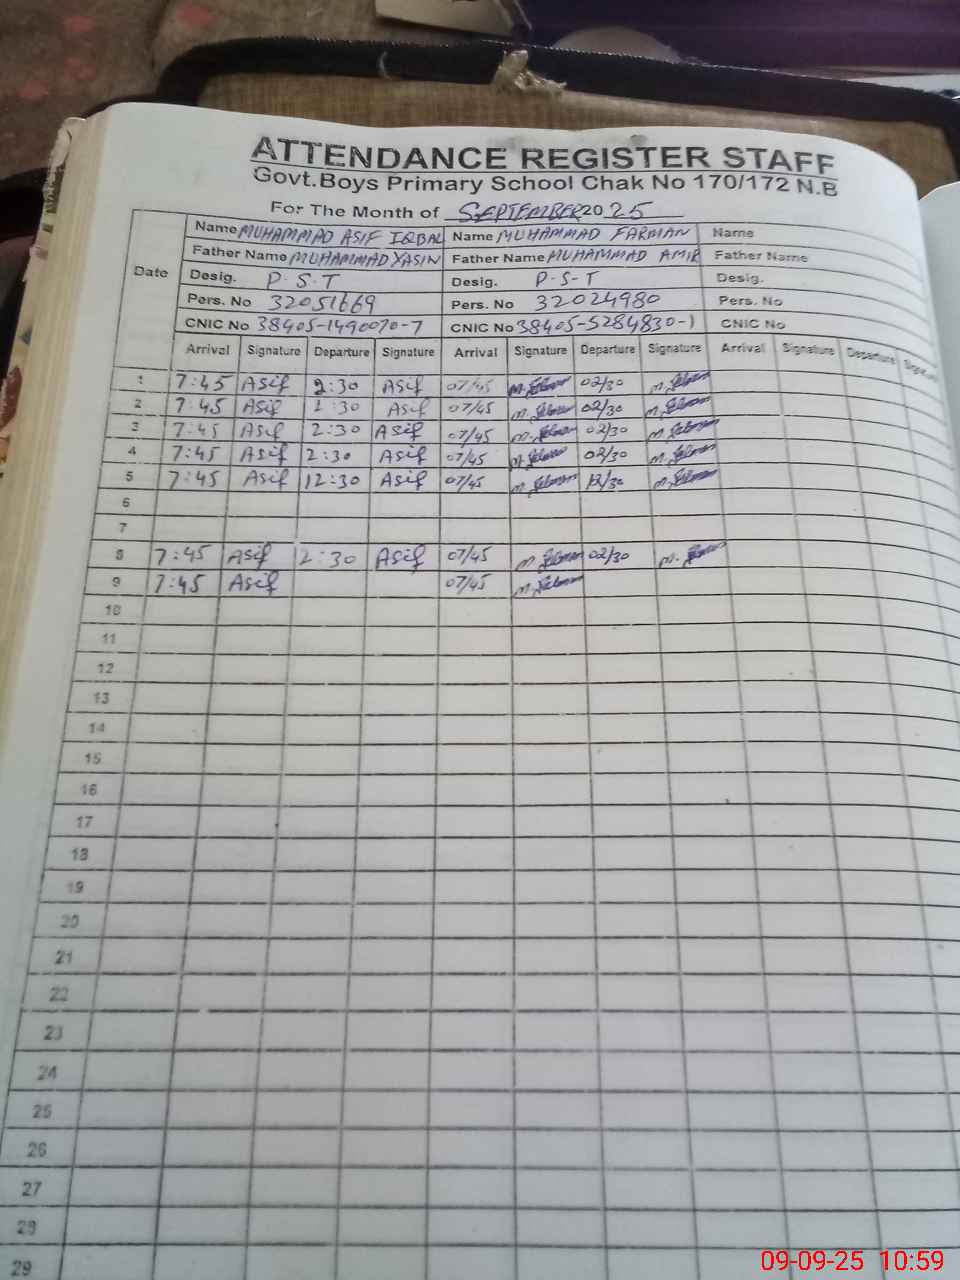 ATTENDANCE REGISTER STAFF
Govt.Boys Primary School Chak No 170/172 N.B
For The Month of SEPTEMBER 2025
Date Name MUHAMMAD ASIF IQBAL Name MUHAMMAD FARMAN Name
Father Name MUHAMMAD YASIN Father Name MUHAMMAD AMIR Father Name
Desig. P.S.T Desig. P.S-T Desig.
Pers. No 32051669 Pers. No 32024980 Pers. No
CNIC No 38405-1490070-7 CNIC No 38405-5284830-1 CNIC No
Arrival Signature Departure Signature Arrival Signature Departure Signature Arrival Signature Departure Signature
1 7:45 Asif 2:30 Asif 07/45 02/30
2 7:45 Asif Asif 07/45 02/30
3 7:45 Asif 2:30 Asif 07/45 02/30
4 7:45 Asif 2:30 Asif 07/45 02/30
5 7:45 Asif 12:30 Asif 07/45 12/30
6
7
8 7:45 Asif 2:30 Asif 07/45 02/30
9 7:45 Asif 07/45
10
11
12
13
14
15
16
17
18
19
20
21
22
23
24
25
26
27
28
29
09-09-25 10:59